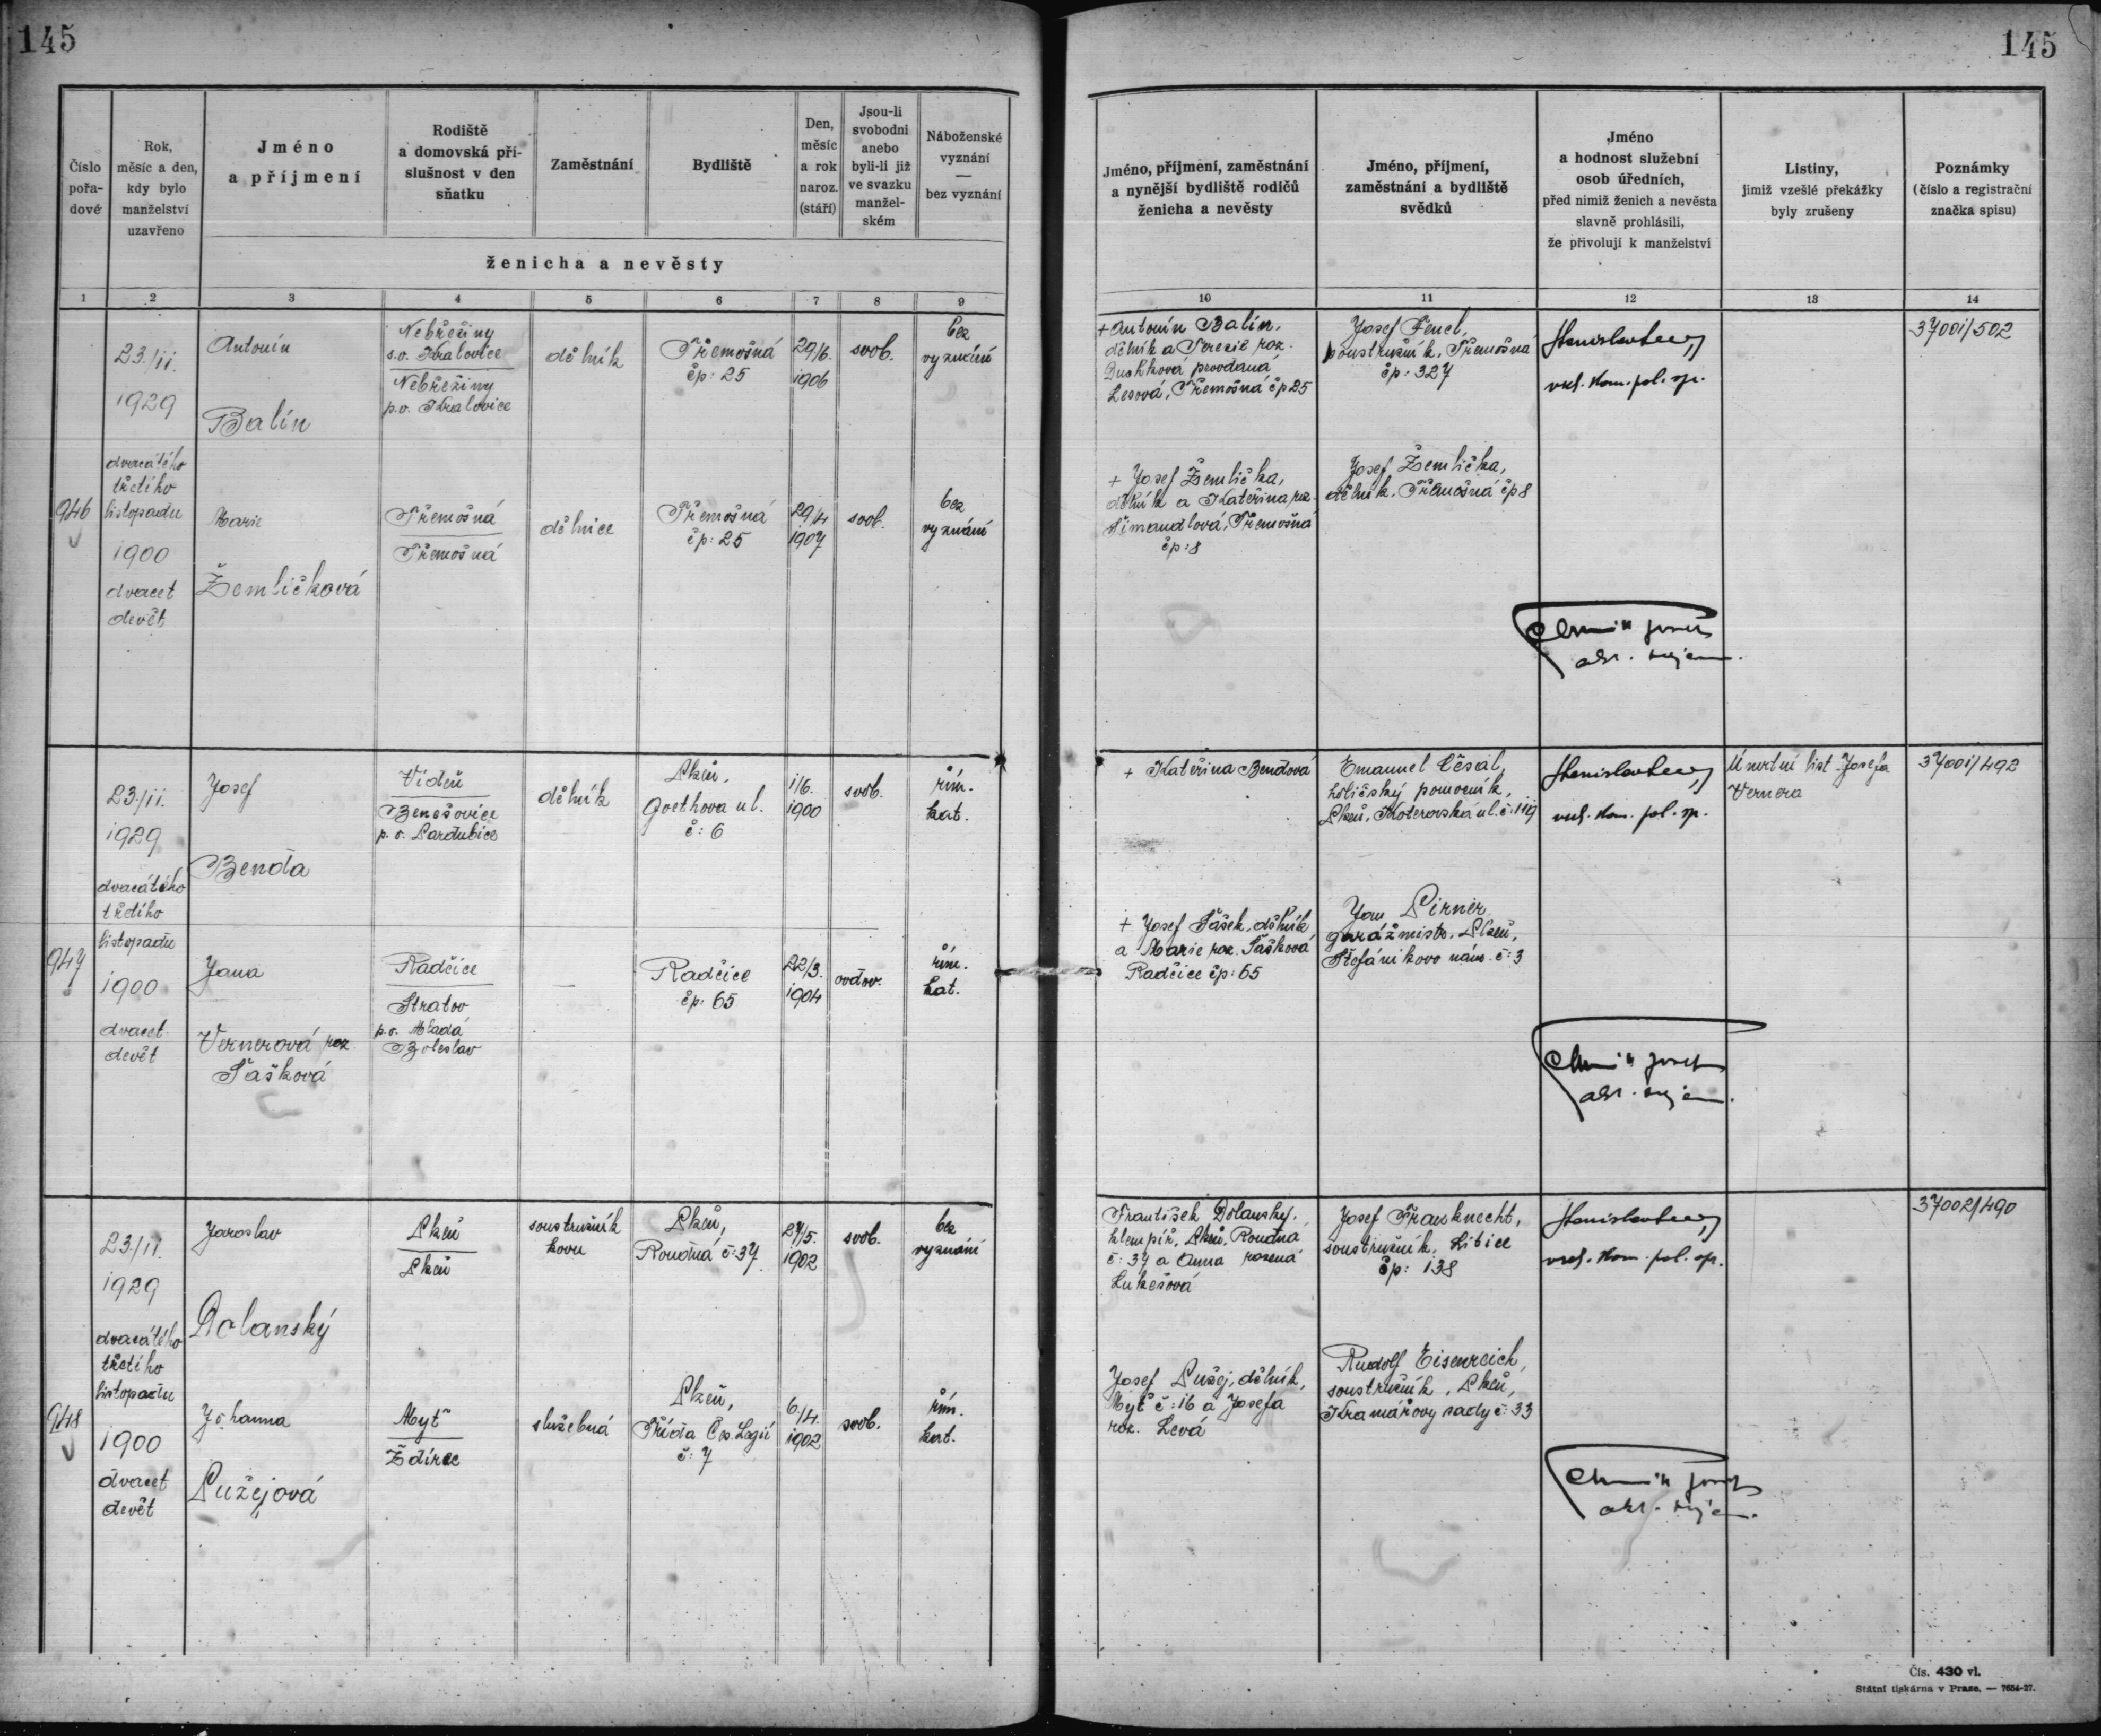 145
145
Číslo
pořa-
dové
Rok,
měsíc a den,
kdy bylo
manželství
uzavřeno
Jméno
a příjmení
Rodiště
a domovská pří-
slušnost v den
sňatku
Zaměstnání
Bydliště
Den,
měsíc
a rok
naroz.
(stáří)
Jsou-li
svobodni
anebo
byli-li již
ve svazku
manžel-
ském
Náboženské
vyznání
—
bez vyznání
ženicha a nevěsty
Jméno, příjmení, zaměstnání
a nynější bydliště rodičů
ženicha a nevěsty
Jméno, příjmení,
zaměstnání a bydliště
svědků
Jméno
a hodnost služební
osob úředních,
před nimiž ženich a nevěsta
slavně prohlásili,
že přivolují k manželství
Listiny,
jimiž vzešlé překážky
byly zrušeny
Poznámky
(číslo a registrační
značka spisu)
1 2 3 4 5 6 7 8 9
10 11 12 13 14
946
23./11.
1929
dvacátého
třetího
listopadu
1900
dvacet
devět
Antonín
Balín
Nebřežiny
s.o. Kralovice
Nebřežiny
p.o. Kralovice
dělník
Třemošná
čp: 25
29/6.
1906
svob.
bez
vyznání
Marie
Žemličková
Třemošná
Třemošná
dělnice
Třemošná
čp: 25
29/4
1907
svob.
bez
vyznání
+ Antonín Balín,
dělník a Terezie roz.
Duchková provdaná
Lesová, Třemošná čp 25
+ Josef Žemlička,
dělník a Kateřina roz.
Šimandlová, Třemošná
čp: 8
Josef Fencl,
soustružník, Třemošná
čp: 327
Josef Žemlička,
dělník, Třemošná čp 8
vrch. kom. pol. sp.
37001/502
947
23./11.
1929
dvacátého
třetího
listopadu
1900
dvacet
devět
Josef
Benda
Vídeň
Benešovice
p. o. Pardubice
dělník
Plzeň,
Goethova ul.
č: 6
1/6.
1900
svob.
řím.
kat.
Jana
Vernerová roz.
Šašková
Radčice
Stratov
p. o. Mladá
Boleslav
—
Radčice
čp: 65
22/3.
1904
ovdov.
řím.
kat.
+ Kateřina Bendová
+ Josef Šašek, dělník
a Marie roz. Šašková
Radčice čp: 65
Emanuel Česal,
holičský pomocník,
Plzeň, Koterovská ul. č: 119
Jan Pirner
garážmistr, Plzeň,
Štefánikovo nám. č: 3
vrch. kom. pol. sp.
Úmrtní list Josefa
Vernera
37001/492
948
23./11.
1929
dvacátého
třetího
listopadu
1900
dvacet
devět
Jaroslav
Dolanský
Plzeň
Plzeň
soustružník
kovu
Plzeň,
Roudná č: 37
27/5.
1902
svob.
bez
vyznání
Johanna
Pužejová
Myť
Ždírec
služebná
Plzeň,
Třída Čs. Legií
č: 7
6/4.
1902
svob.
řím.
kat.
František Dolanský,
klempíř, Plzeň, Roudná
č: 37 a Anna rozená
Lukešová
Josef Pužej, dělník,
Myť č: 16 a Josefa
roz. Levá
Josef Frauknecht,
soustružník, Litice
čp: 138
Rudolf Eisenreich,
soustružník, Plzeň,
Kramářovy sady č: 33
vrch. kom. pol. sp.
37002/490
Čís. 430 vl.
Státní tiskárna v Praze. — 7654-27.